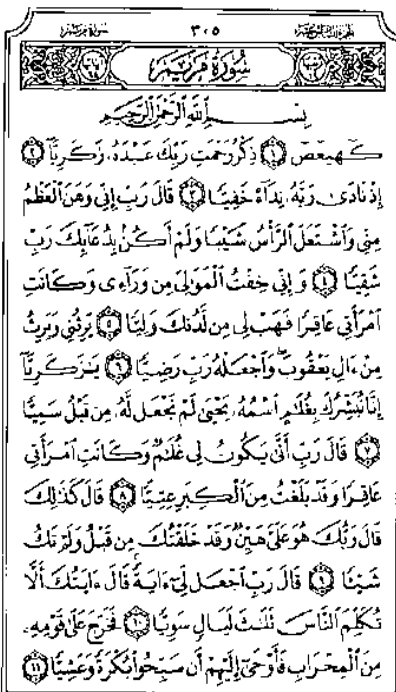 سورة مريم ٣٠٥ الجزء السادس عشر
سُورَةُ مَرْيَمَ
بِسْمِ اللَّهِ الرَّحْمَٰنِ الرَّحِيمِ
كٓهيعٓصٓ ١ ذِكْرُ رَحْمَتِ رَبِّكَ عَبْدَهُۥ زَكَرِيَّآ ٢
إِذْ نَادَىٰ رَبَّهُۥ نِدَآءً خَفِيًّا ٣ قَالَ رَبِّ إِنِّى وَهَنَ ٱلْعَظْمُ
مِنِّى وَٱشْتَعَلَ ٱلرَّأْسُ شَيْبًا وَلَمْ أَكُنۢ بِدُعَآئِكَ رَبِّ
شَقِيًّا ٤ وَإِنِّى خِفْتُ ٱلْمَوَٰلِىَ مِن وَرَآءِى وَكَانَتِ
ٱمْرَأَتِى عَاقِرًا فَهَبْ لِى مِن لَّدُنكَ وَلِيًّا ٥ يَرِثُنِى وَيَرِثُ
مِنْ ءَالِ يَعْقُوبَ ۖ وَٱجْعَلْهُ رَبِّ رَضِيًّا ٦ يَٰزَكَرِيَّآ
إِنَّا نُبَشِّرُكَ بِغُلَٰمٍ ٱسْمُهُۥ يَحْيَىٰ لَمْ نَجْعَل لَّهُۥ مِن قَبْلُ سَمِيًّا
٧ قَالَ رَبِّ أَنَّىٰ يَكُونُ لِى غُلَٰمٌ وَكَانَتِ ٱمْرَأَتِى
عَاقِرًا وَقَدْ بَلَغْتُ مِنَ ٱلْكِبَرِ عِتِيًّا ٨ قَالَ كَذَٰلِكَ
قَالَ رَبُّكَ هُوَ عَلَىَّ هَيِّنٌ وَقَدْ خَلَقْتُكَ مِن قَبْلُ وَلَمْ تَكُ
شَيْـًٔا ٩ قَالَ رَبِّ ٱجْعَل لِّىٓ ءَايَةً ۚ قَالَ ءَايَتُكَ أَلَّا
تُكَلِّمَ ٱلنَّاسَ ثَلَٰثَ لَيَالٍ سَوِيًّا ١٠ فَخَرَجَ عَلَىٰ قَوْمِهِۦ
مِنَ ٱلْمِحْرَابِ فَأَوْحَىٰٓ إِلَيْهِمْ أَن سَبِّحُوا۟ بُكْرَةً وَعَشِيًّا ١١